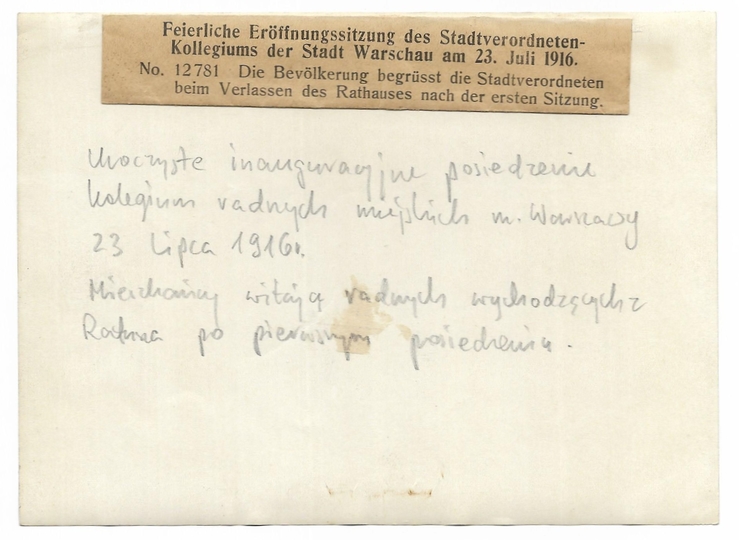 Feierliche Eröffnungssitzung des Stadtverordneten-
Kollegiums der Stadt Warschau am 23. Juli 1916.
No. 12781 Die Bevölkerung begrüsst die Stadtverordneten
beim Verlassen des Rathauses nach der ersten Sitzung.
Uroczyste inauguracyjne posiedzenie
kolegium radnych miejskich m. Warszawy
23 Lipca 1916r.
Mieszkańcy witają radnych wychodzących z
Ratusza po pierwszym posiedzeniu.